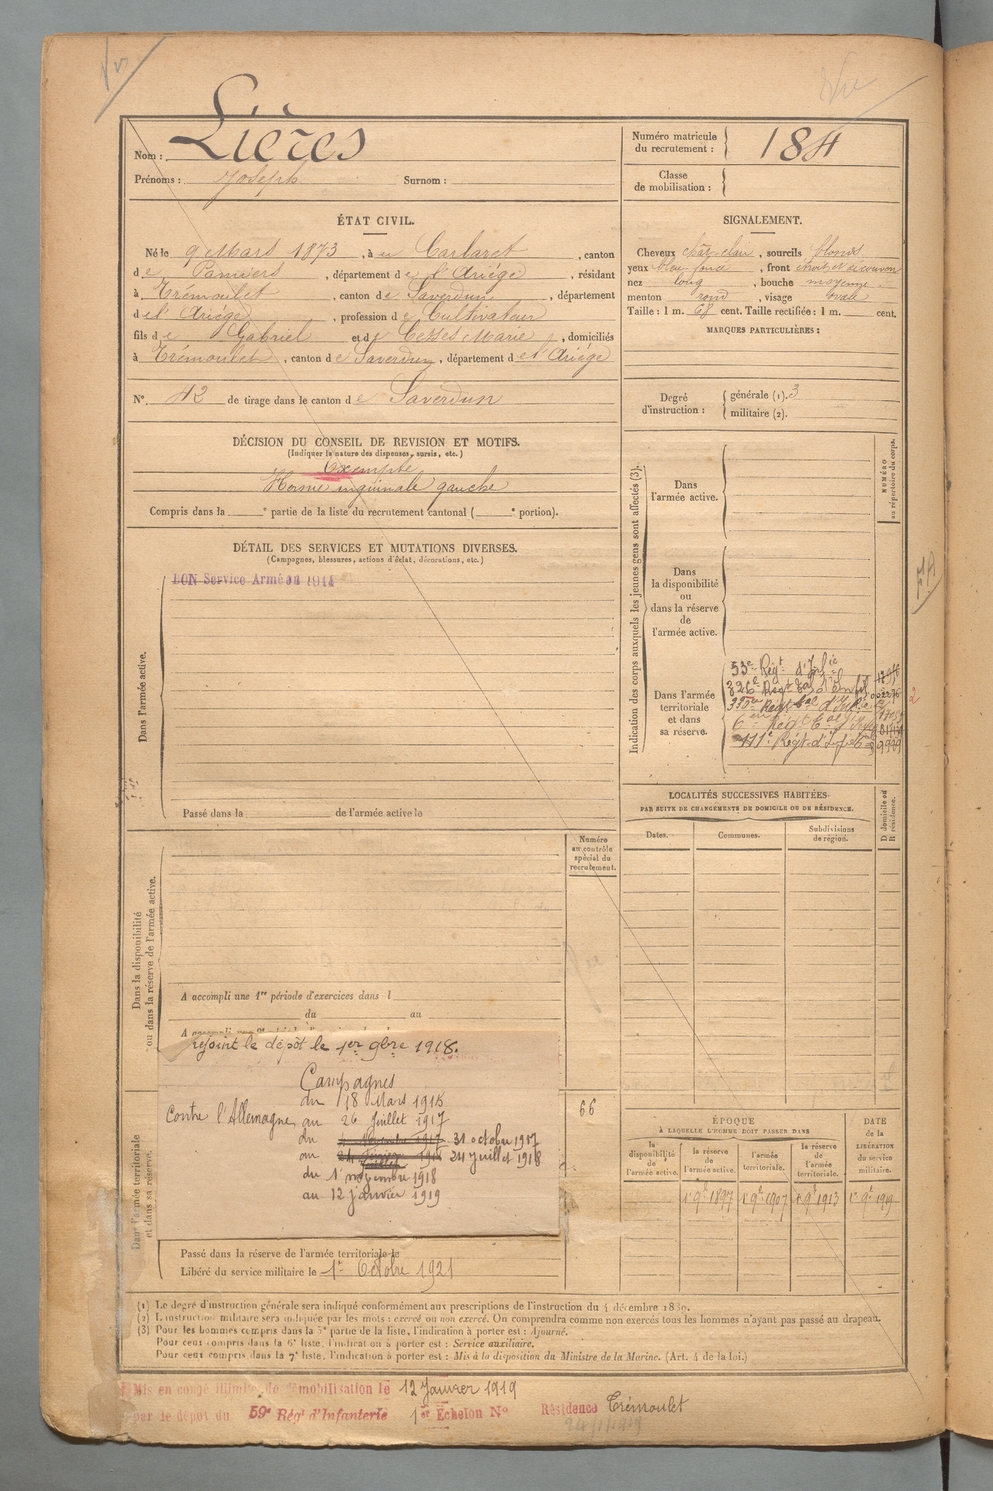 Vu
Vu
Nom : Lières
Prénoms : Joseph Surnom :
Numéro matricule du recrutement : 184
Classe de mobilisation :
ÉTAT CIVIL.
Né le 9 Mars 1873, à u Carlaret, canton
de Pamiers, département de l'Ariège, résidant
à Trémoulet, canton de Saverdun, département
de l'Ariège, profession de Cultivateur
fils de Gabriel et de Cesses Marie, domiciliés
à Trémoulet, canton de Saverdun, département de l'Ariège
N° 42 de tirage dans le canton de Saverdun
SIGNALEMENT.
Cheveux chât. clair, sourcils blonds
yeux bleu foncé, front étroit et découvert
nez long, bouche moyenne
menton rond, visage ovale
Taille : 1 m. 68 cent. Taille rectifiée : 1 m. cent.
MARQUES PARTICULIÈRES :
Degré d'instruction : générale (1). 3
militaire (2).
DÉCISION DU CONSEIL DE REVISION ET MOTIFS.
(Indiquer la nature des dispenses, sursis, etc.)
Exempté
Hernie inguinale gauche
Compris dans la e partie de la liste du recrutement cantonal ( e portion).
DÉTAIL DES SERVICES ET MUTATIONS DIVERSES.
(Campagnes, blessures, actions d'éclat, décorations, etc.)
BON Service Armé en 1914
Dans l'armée active.
Passé dans la de l'armée active le
Indication des corps auxquels les jeunes gens sont affectés (3).
NUMÉRO
au répertoire du corps.
Dans
l'armée active.
Dans
la disponibilité
ou
dans la réserve
de
l'armée active.
Dans l'armée
territoriale
et dans
sa réserve.
53e Régt d'Infie
326e Regt tal d'Infie
330me Regt tal d'Infie
6e Régt Cal
111e Régt d'Infie
LOCALITÉS SUCCESSIVES HABITÉES
PAR SUITE DE CHANGEMENTS DE DOMICILE OU DE RÉSIDENCE.
Dates.
Communes.
Subdivisions
de région.
D domicile ou
R résidence.
Numéro
au contrôle
spécial du
recrutement.
Dans la disponibilité
ou dans la réserve de l'armée active.
A accompli une 1re période d'exercices dans l
du au
rejoint le dépôt le 1er 9bre 1918.
Campagnes
Contre l'Allemagne, du 18 Mars 1915
au 26 Juillet 1917
du 31 octobre 1917
au 24 Juillet 1918
du 1er novembre 1918
au 12 janvier 1919
66
Dans l'armée territoriale
et dans sa réserve.
Passé dans la réserve de l'armée territoriale le
Libéré du service militaire le 1er Octobre 1921
ÉPOQUE
À LAQUELLE L'HOMME DOIT PASSER DANS
DATE
de la
LIBÉRATION
du service
militaire.
la
disponibilité
de
l'armée active.
la réserve
de
l'armée active.
l'armée
territoriale.
la réserve
de
l'armée
territoriale.
1er 9bre 1897
1er 9bre 1907
1er 9bre 1913
1er 9bre 1919
(1) Le degré d'instruction générale sera indiqué conformément aux prescriptions de l'instruction du 4 décembre 1889.
(2) L'instruction militaire sera indiquée par les mots : exercé ou non exercé. On comprendra comme non exercés tous les hommes n'ayant pas passé au drapeau.
(3) Pour les hommes compris dans la 5e partie de la liste, l'indication à porter est : Ajourné.
Pour ceux compris dans la 6e liste, l'indication à porter est : Service auxiliaire.
Pour ceux compris dans la 7e liste, l'indication à porter est : Mis à la disposition du Ministre de la Marine. (Art. 4 de la loi.)
Mis en congé illimité de démobilisation le 12 Janvier 1919
par le dépôt du 59e Rég d'Infanterie 1er Echelon No Résidence Trémoulet